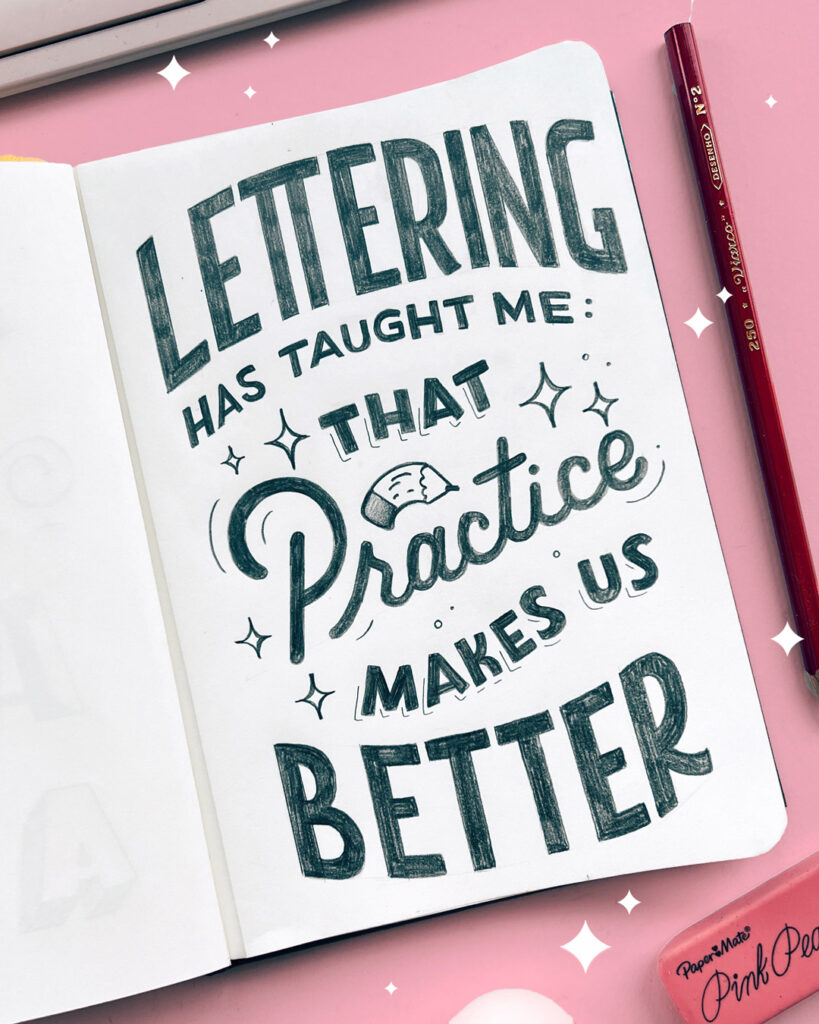 LETTERING
HAS TAUGHT ME:
THAT
Practice
MAKES US
BETTER
250 "Viarco" DESENHO Nº2
Paper Mate
Pink Pea